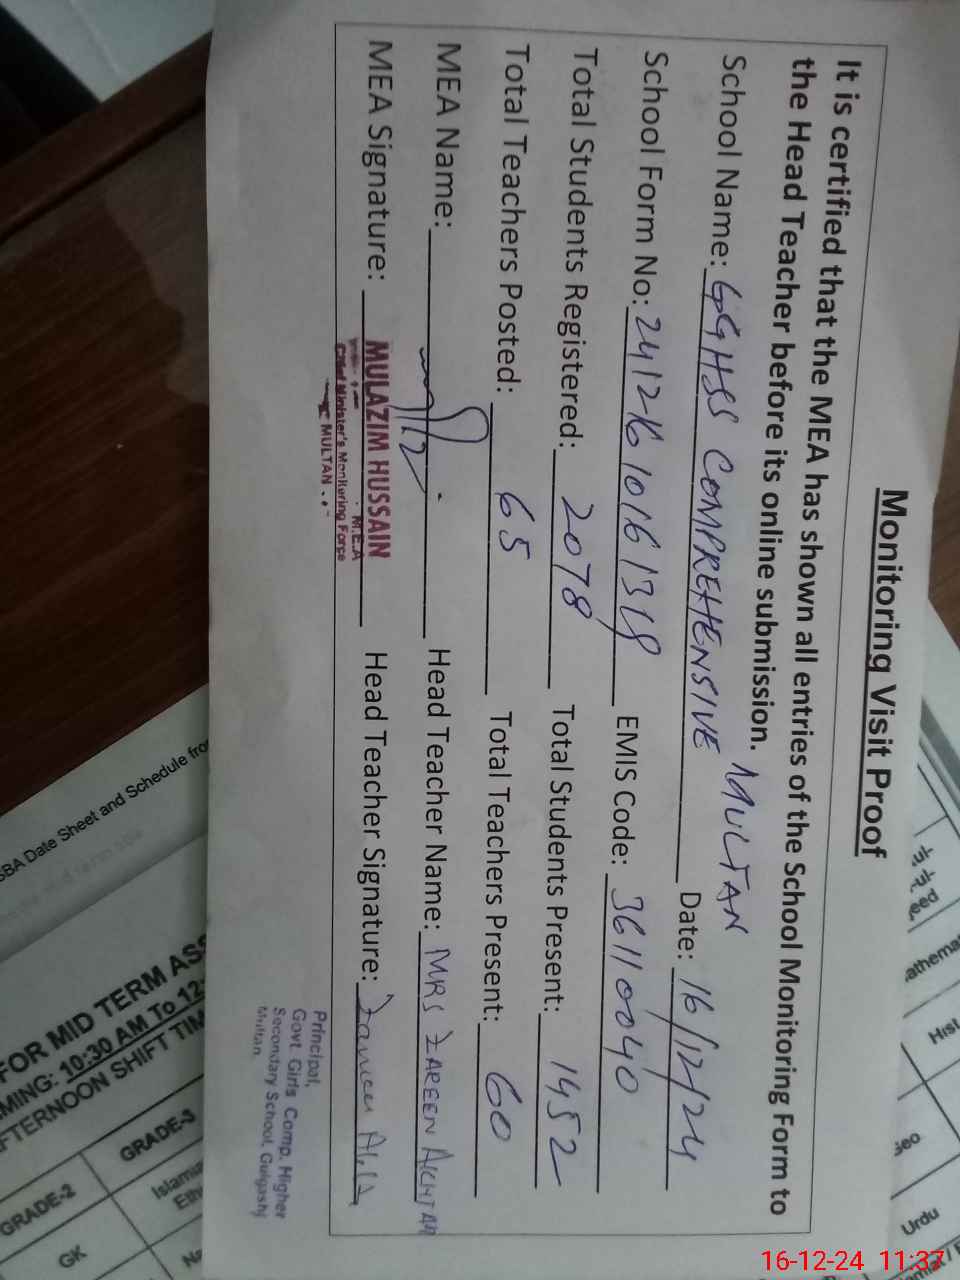 Monitoring Visit Proof
It is certified that the MEA has shown all entries of the School Monitoring Form to
the Head Teacher before its online submission.
School Name: GGHSS COMPREHENSIVE MULTAN Date: 16/12/24
School Form No: EMIS Code: 36110040
Total Students Registered: 2078 Total Students Present: 1452
Total Teachers Posted: 65 Total Teachers Present: 60
MEA Name: Head Teacher Name: MRS ZAREEN AKHTAR
MEA Signature: Head Teacher Signature:
MULAZIM HUSSAIN
M.E.A
Chief Minister's Monitoring Force
MULTAN
Principal,
Govt. Girls Comp. Higher
Secondary School, Gulgasht
Multan
SBA Date Sheet and Schedule fro
FOR MID TERM ASS
MING: 10:30 AM To 12:
FTERNOON SHIFT TIM
GRADE-2 GRADE-3
GK Islamia
Eth
Na
ul-
-ul-
eed
athema
Hist
Geo
Urdu
16-12-24 11:37